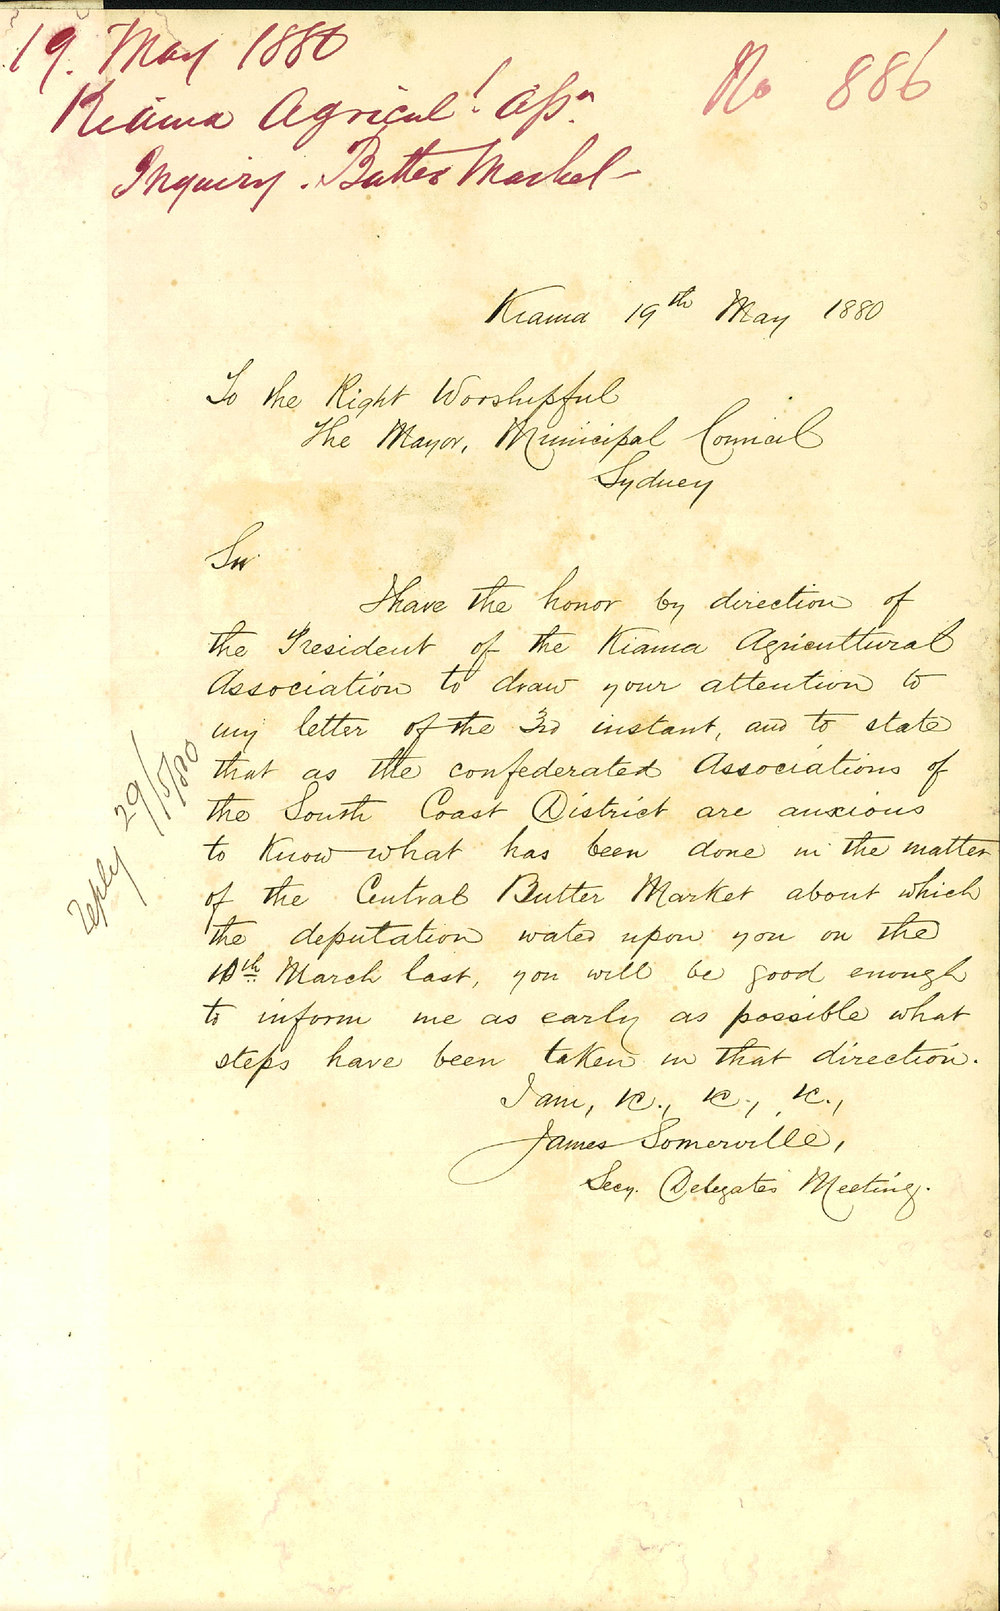 19. May 1880
No 886
Kiama Agricul.l Assn.
Inquiry. Butter Market -
Kiama 19th May 1880
To the Right Worshipful
The Mayor, Municipal Council
Sydney
Sir
I have the honor by direction of
the President of the Kiama Agricultural
Association to draw your attention to
my letter of the 3rd instant, and to state
that as the confederated Associations of
the South Coast District are anxious
to know what has been done in the matter
of the Central Butter Market about which
the deputation wated upon you on the
10th March last, you will be good enough
to inform me as early as possible what
steps have been taken in that direction.
I am, &c., &c., &c.,
James Somerville,
Secy. Delegates Meeting.
reply 29/5/80